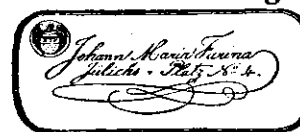 Johann Maria Farina
Jülichs-Platz No 4.